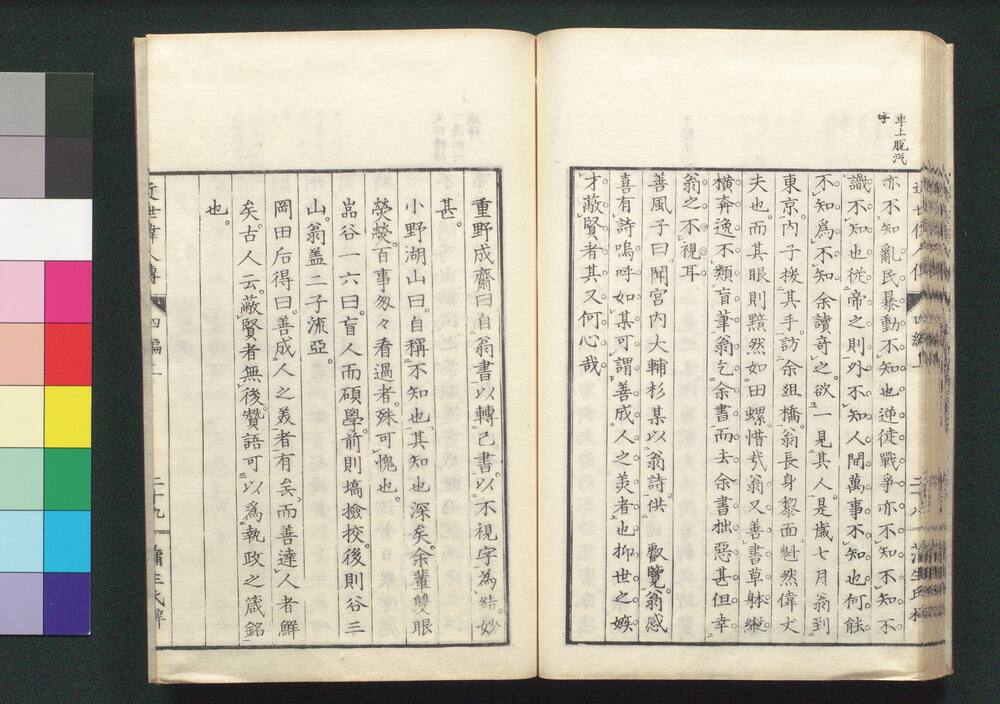 車上脫汽
字
亦不知亂民暴動不知也逆徒戰爭亦不知不知不
識不知也從帝之則外不知人間萬事不知也何能
不知爲不知余讀奇之欲一見其人是歲七月翁到
東京內子扶其手訪余俎橋翁長身黎面魁然偉丈
夫也而其眼則黯然如田螺惜哉翁又善書草躰縱
橫奔逸不類盲筆翁乞余書而去余書拙惡甚但幸
翁之不視耳
善風子曰聞宮內大輔杉某以翁詩供 叡覽翁感
喜有詩嗚呼如某可謂善成人之美者也抑世之嫉
才蔽賢者其又何心哉
重野成齋曰自翁書以轉己書以不視字為結妙
甚。
小野湖山曰。自稱不知也其知也深矣。余輩雙眼
熒熒。百事匆々看過者。殊可愧也。
嵓谷一六曰。盲人而碩學。前則塙撿挍。後則谷三
山。翁盖二子流亞。
岡田后得曰。善成人之美者有矣。而善達人者鮮
矣。古人云。蔽賢者無後。贊語可以爲執政之箴銘
也。
近世偉人傳
四編上
二十九
蒲生氏梓